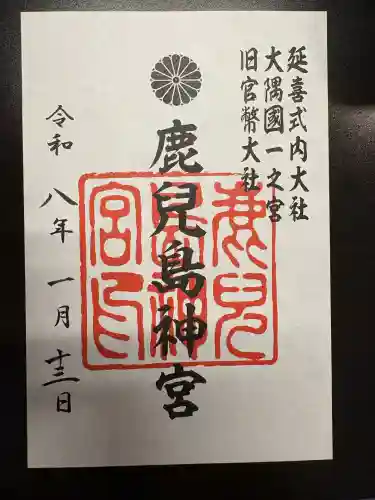 延喜式内大社
大隅國一之宮
旧官幣大社
鹿兒島神宮
鹿兒島神宮印
令和八年一月十三日